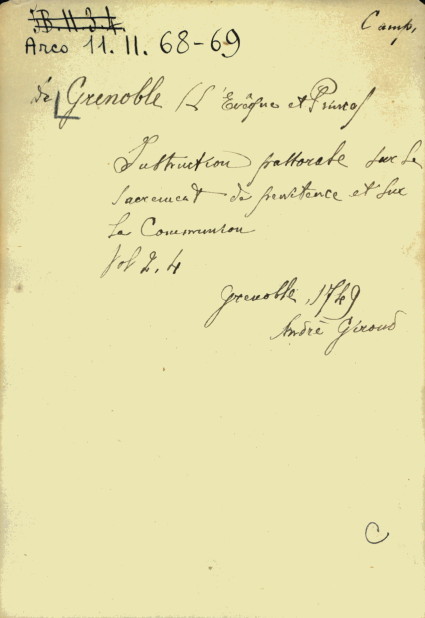 Camp.
Arco 11.11.68-69
de Grenoble (L'Evêque et Prince)
Instruction pastorale sur le
sacrement de penitence et sur
la Communion
Vol 2. 4
Grenoble, 1749
André Giroud
C